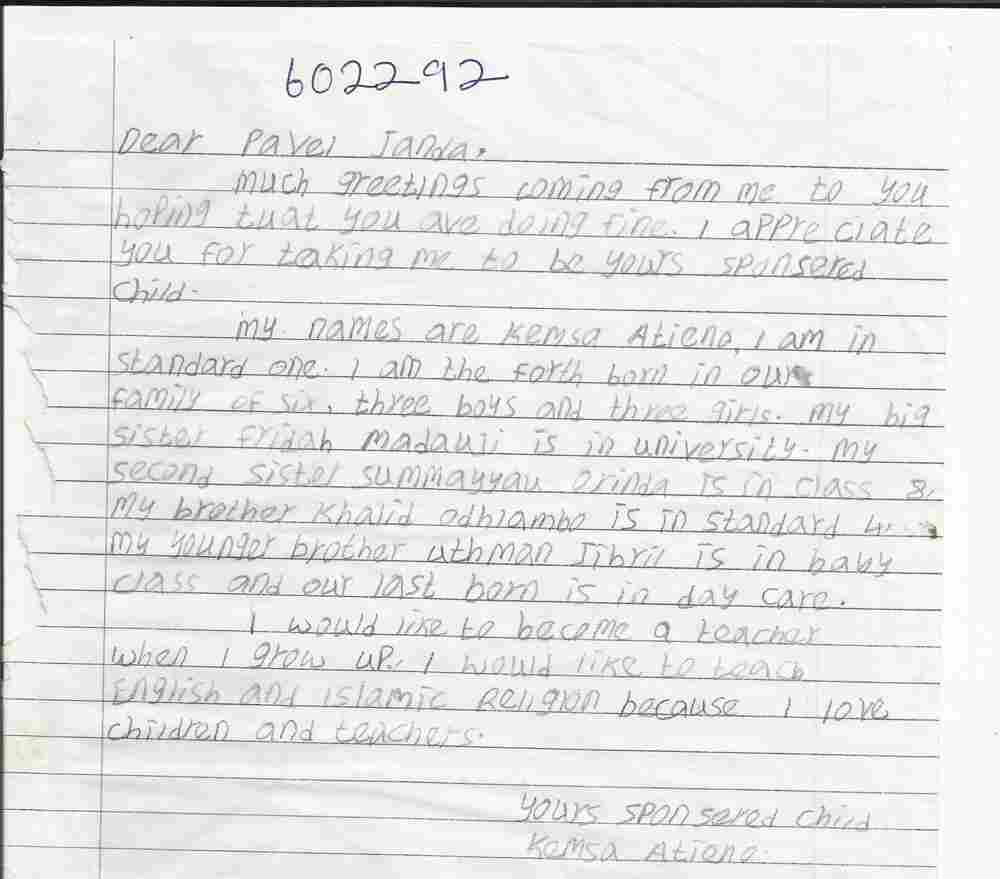 602292
Dear Pavel Janda,
much greetings coming from me to you
hoping that you are doing fine. I appreciate
you for taking me to be yours sponsered
child.
my names are Kemsa Atieno, I am in
standard one. I am the forth born in our
family of six, three boys and three girls. my big
sister fridah madauji is in university. my
second sister summayyau Orinda is in class 8,
my brother Khalid odhiambo is in standard 4.
my younger brother uthman Jibril is in baby
class and our last born is in day care.
I would like to become a teacher
when I grow up. I would like to teach
English and islamic Religion because I love
children and teachers.
yours sponsered child
Kemsa Atieno.